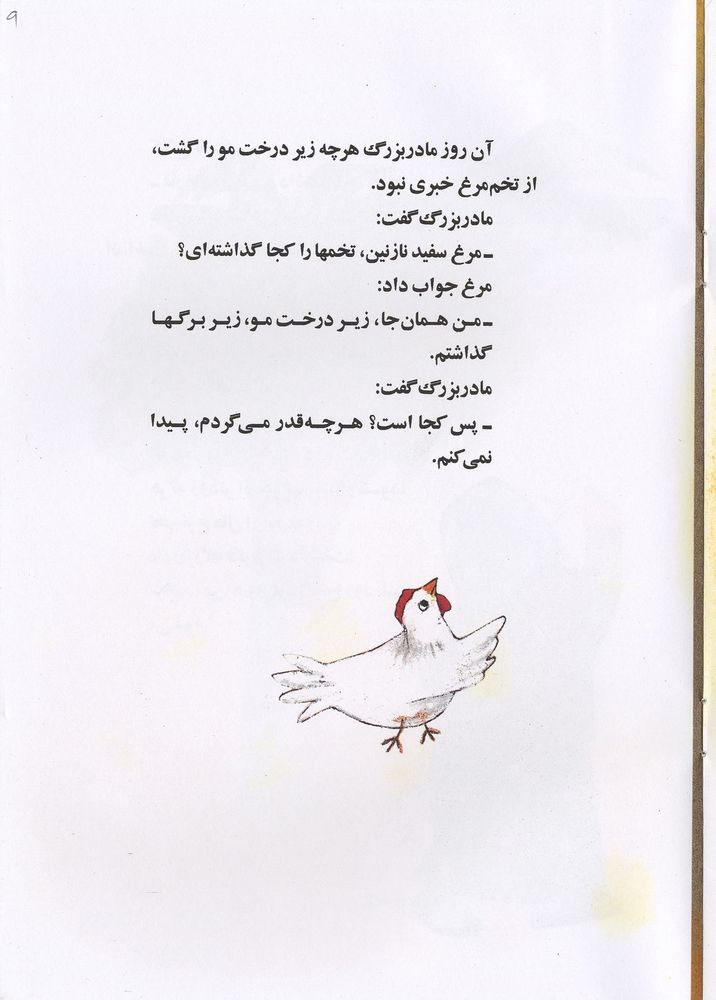 ۹
آن روز مادربزرگ هرچه زیر درخت مو را گشت،
از تخم‌مرغ خبری نبود.
مادربزرگ گفت:
ـ مرغ سفید نازنین، تخمها را کجا گذاشته‌ای؟
مرغ جواب داد:
ـ من همان‌جا، زیر درخت مو، زیر برگها
گذاشتم.
مادربزرگ گفت:
ـ پس کجا است؟ هرچه‌قدر می‌گردم، پیدا
نمی‌کنم.